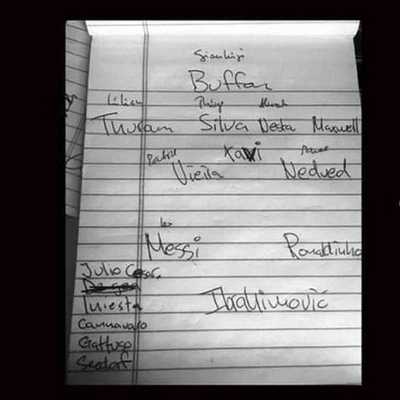 Gianluigi
Buffon
Lilian Thiago
Thuram Silva Nesta Maxwell
Patrick Xavi Pavel
Vieira Nedved
Leo
Messi Ronaldinho
Julio Cesar
Iniesta Ibrahimovič
Cannavaro
Gattuso
Seedorf